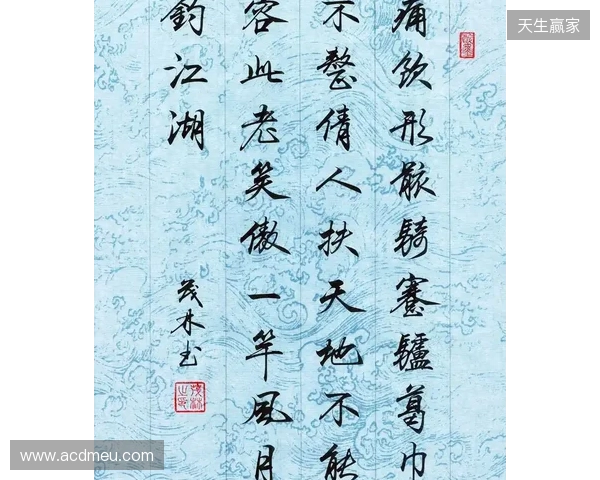 天生赢家
痛飲形骸騎蹇驢葛巾
不整倩人扶天地不能
容此老笑傲一竿風月
釣江湖
茂林书
www.acdmeu.com